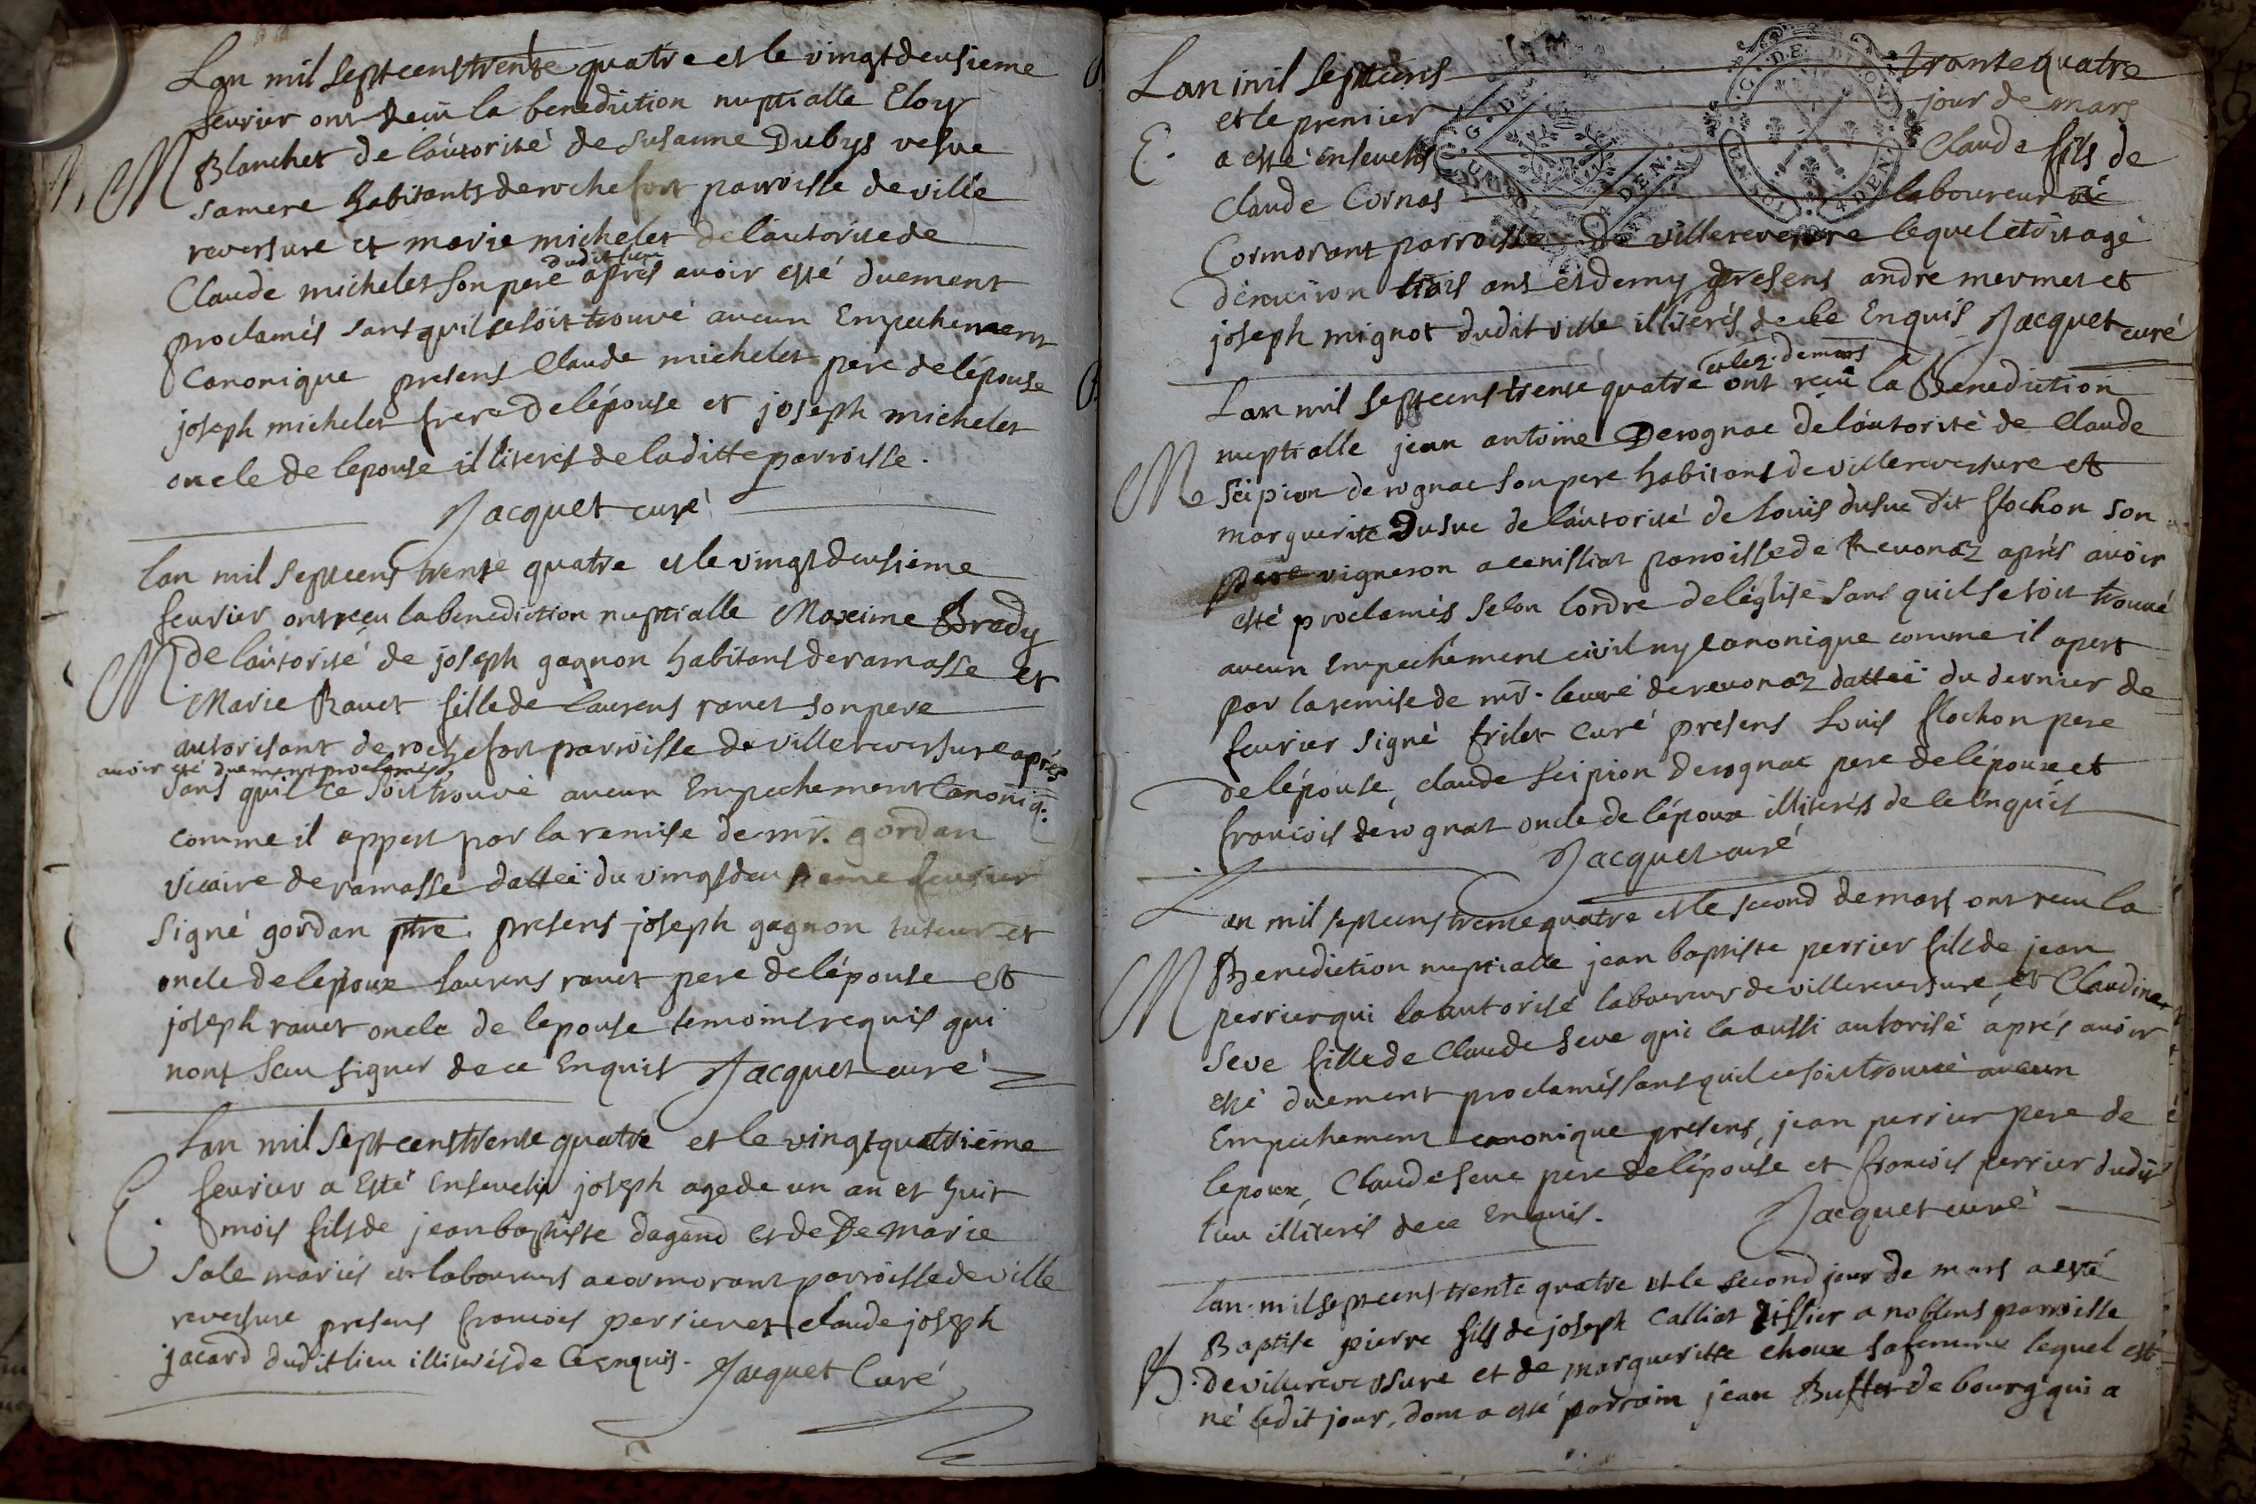 Lan mil sept cens trente quatre et le vingt deusieme
feurier ont receu la benediction nuptialle Eloy
M Blanchet de lautorité de susanne Dubys vesve
sa mere habitants de rochefort parroisse de ville
reversure et marie michelet de lautorite de
dudit lieu
Claude michelet son pere apres avoir esté duement
proclamés sans quil se soit trouvé aucun Empechement
Canonique presens Claude michelet pere de lépouse
joseph michelet frere de lépouse et joseph michelet
oncle de lepouse illiterés de la ditte parroisse.
Jacquet curé
Lan mil sept cens trente quatre et le vingt deusieme
feurier ont receu la benediction nuptialle Maxime Brady
M de lautorité de joseph gagnon habitans de ramasse et
Marie Ravet fille de laurens ravet son pere
autorisant de rochefort parroisse de villereversure aprés
avoir esté duement proclamés
sans quil ce soit trouvé aucun Empechement Canoniq.
comme il appert par la remise de mr. gordan
vicaire de ramasse dattée du vingt deusieme feurier
signé gordan ptre. presens joseph gagnon tuteur et
oncle de lepoux laurens ravet pere de lépouse et
joseph ravet oncle de lepouse temoins requis qui
nont sceu signer de ce Enquis Jacquet curé
Lan mil sept cens trente quatre et le vingt quatriéme
E. feurier a Esté Enseveli joseph age de un an et huit
mois fils de jean baptiste dagand et de De marie
sale mariés et laboureurs a cormorant parroisse de ville
reversure presens francois perrier et claude joseph
jacard dudit lieu illiterés de ce Enquis. Jacquet Curé
Lan mil sept cens trante quatre
et le premier jour de mars
E. a esté ensevelis Claude fils de
Claude Cornas laboureur
Cormorant parroisse de villereversure lequel etoit agé
denuiron trois ans et demy presens andre mermet et
joseph mignot dudit ville illiterés de ce Enquis Jacquet curé
et le 2. de mars
Lan mil sept cens trente quatre ont receu la Benediction
nuptialle jean antoine Derognac de lautorité de Claude
M scipion derognac son pere habitans de villereversure et
marguerite Dusuc de lautorité de louis dusuc dit flochon son
pere vigneron a cenissiat parroisse de Revonaz aprés avoir
esté proclamés selon lordre de léglise sans quil se soit trouvé
aucun Empechement civil ny canonique comme il apert
par la remise de mr. le curé de revonaz dattée du dernier de
feurier signé frilet curé presens louis flochon pere
de lépouse, claude scipion derognac pere de lépoux et
francois derognat oncle de lépoux illiterés de ce Enquis
Jacquet curé
Lan mil sept cens trente quatre et le second de mars ont receu la
M Benediction nuptialle jean baptiste perrier fils de jean
perrier qui la autorisé laboureur de villereversure et Claudine
seve fille de Claude seve qui la aussi autorisé aprés avoir
esté duement proclamés sans quil ce soit trouvé aucun
Empechement canonique presens, jean perrier pere de
lepoux, Claude seve pere de lépouse et francois perrier dudit
lieu illiterés de ce Enquis. Jacquet curé
Lan mil sept cens trente quatre et le second jour de mars a esté
Baptise pierre fils de joseph Calliat tissier a noblens parroisse
B. de villereversure et de margueritte choux sa femme lequel est
né ledit jour, dont a esté parrain jean Buffet de bourg qui a